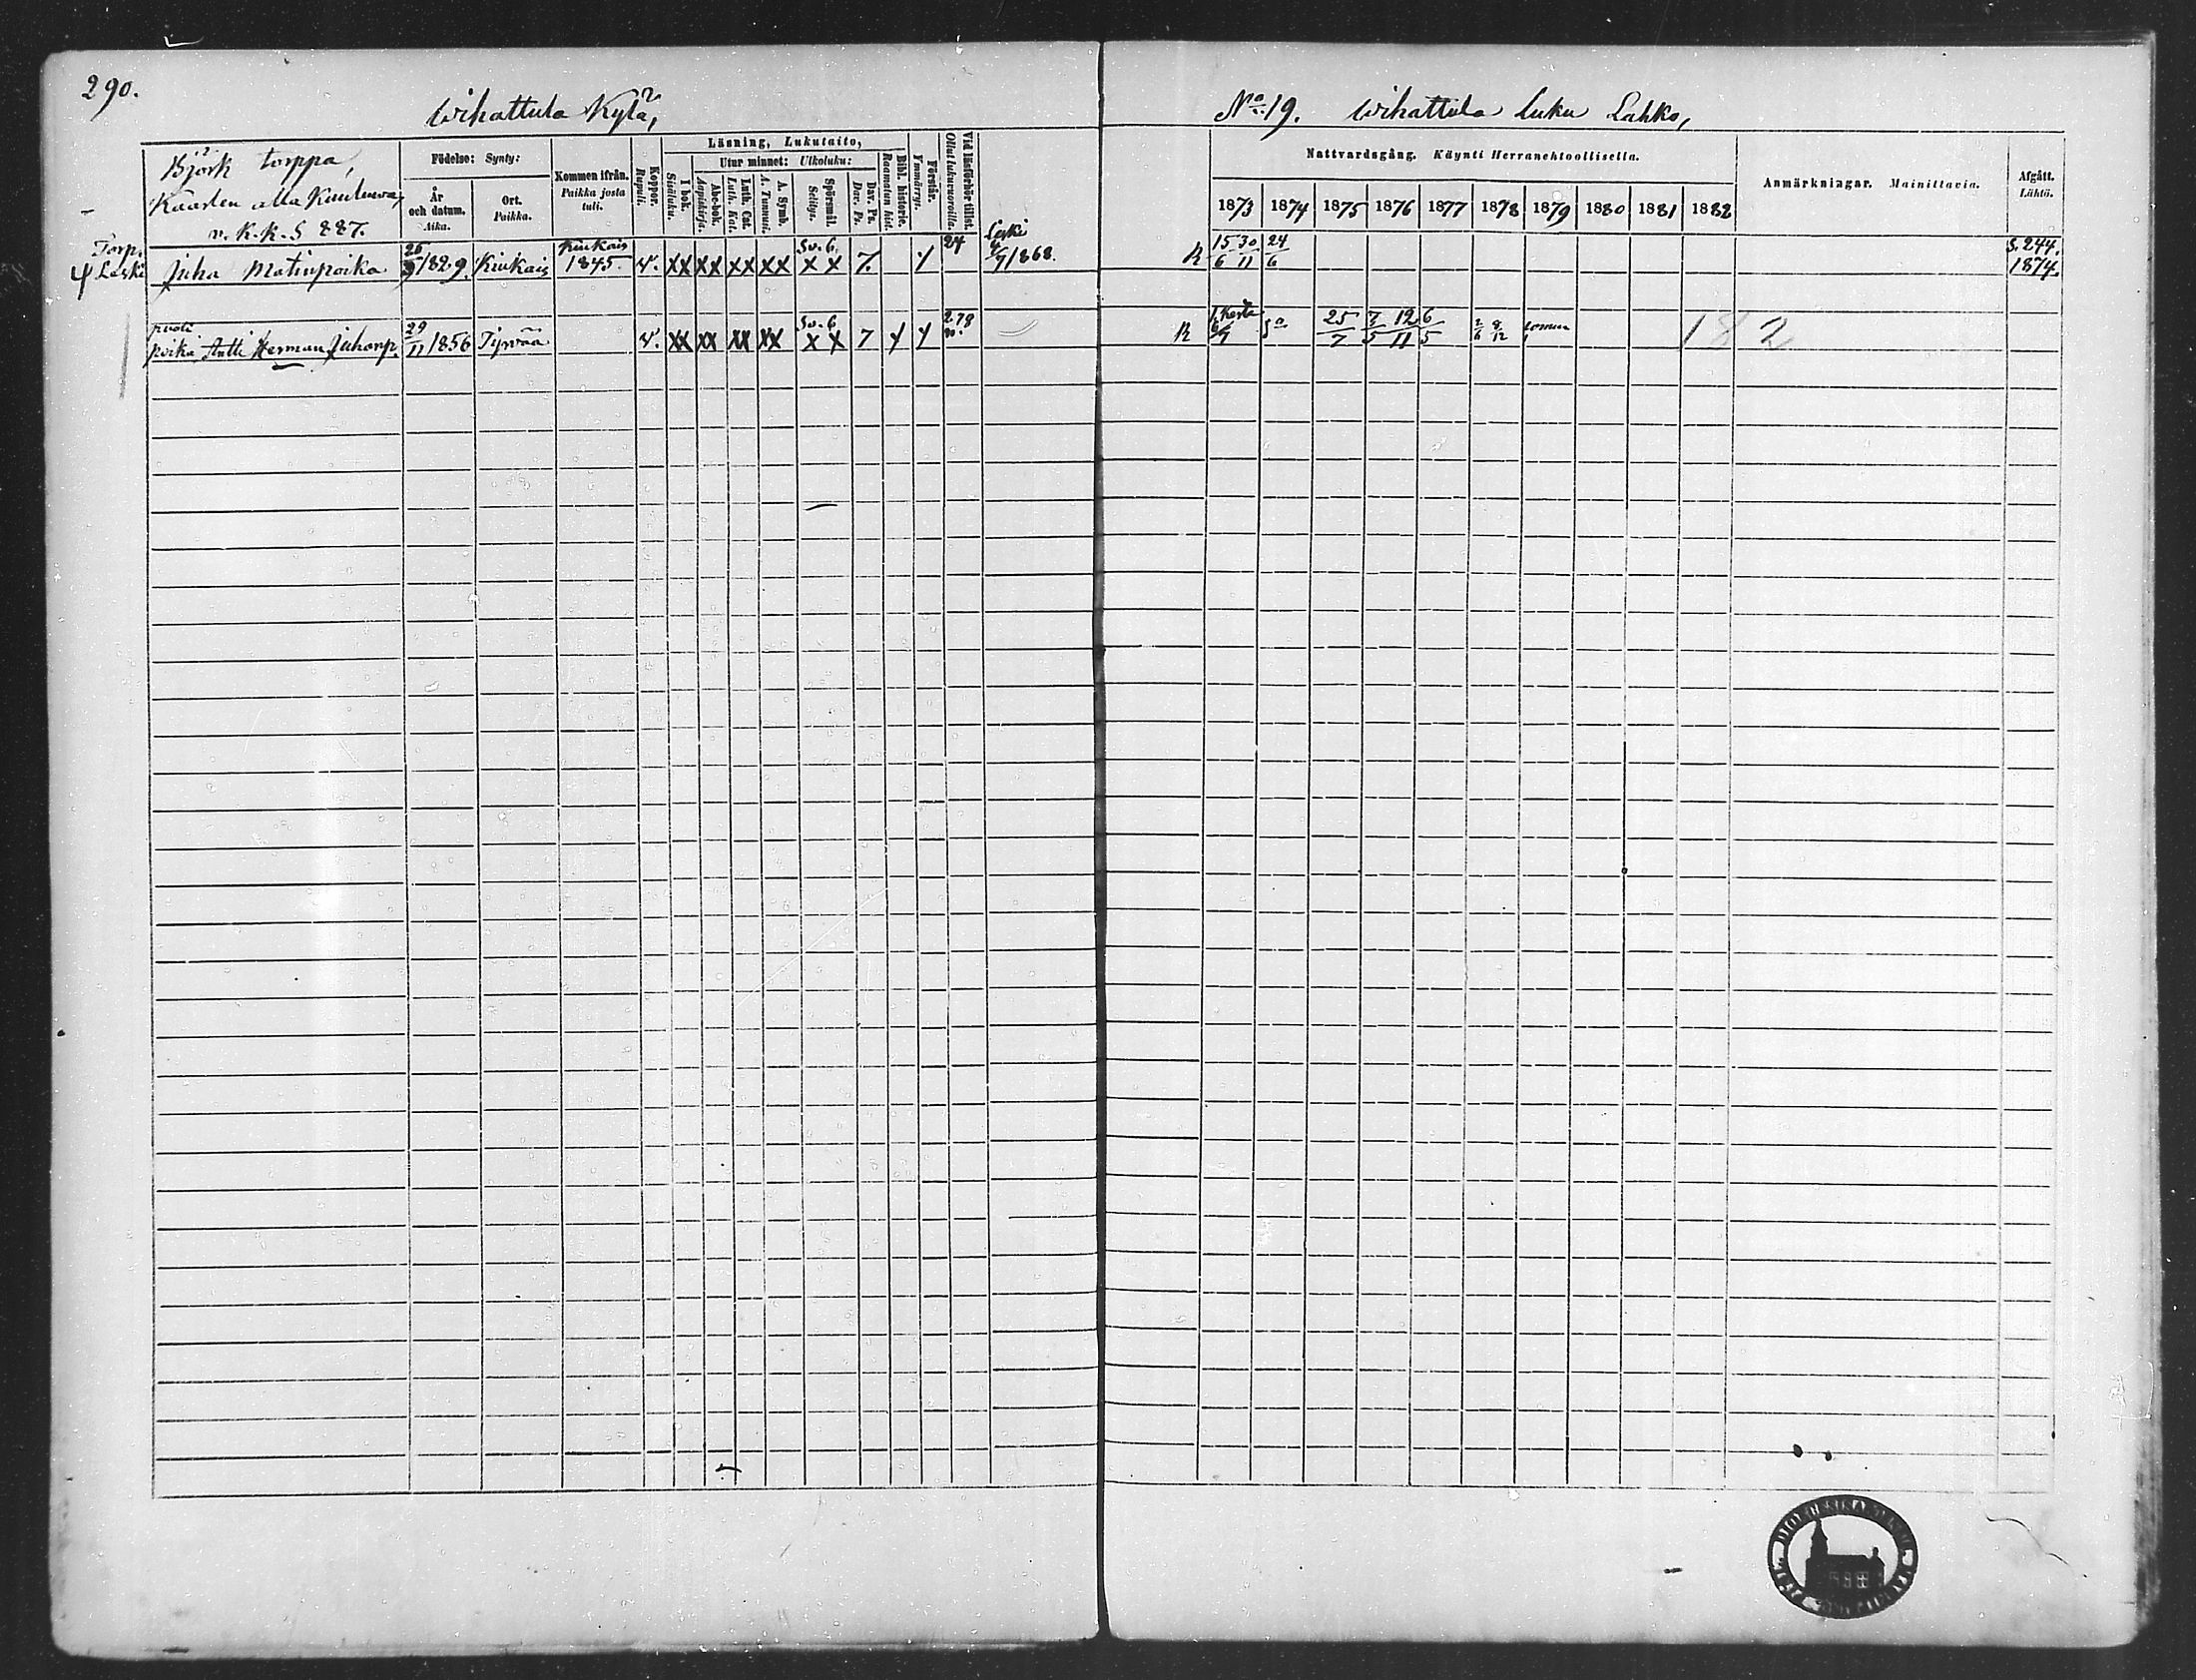 290.
Wihattula Kylä,
No 19. Wihattula luku Lahko,
Björk torppa,
Kaarlen alla Kuuluwa,
v. K. K. S 227.
Födelse: Synty:
År och datum. Aika.
Ort. Paikka.
Kommen ifrån. Paikka josta tuli.
Koppor. Rupuli.
Läsning, Lukutaito,
I bok. Sisäluku.
Utur minnet: Ulkoluku:
Abc-bok. Aapiskirja.
Luth. Cat. Luth. Kat.
A. Symb. A. Tunnus.
Spörsmål. Selitys.
Dav. Ps. Dav. Ps.
Bibl. historie. Raamatun hist.
Förstår. Ymmärrys.
Vid läsförhör tillst. Ollut lukuvuoroilla.
Nattvardsgång. Käynti Herranehtoollisella.
1873 1874 1875 1876 1877 1878 1879 1880 1881 1882
Anmärkningar. Mainittavia.
Afgått. Lähtö.
Torp. Leski Juha Matinpoika 26/9 1829. Kiukais Kiukais 1845. v. XX XX XX XX Sv. 6. X X 7. / 24 Leski 4/9 1868. R 15/6 30/11 24/6 S. 244. 1874.
poika Antti Herman Juhanp. 29/11 1856 Tyrvää v. XX XX XX XX Sv. 6 X X 7 R 25/7 7/5 12/11 6/5 2/6 8/12
182